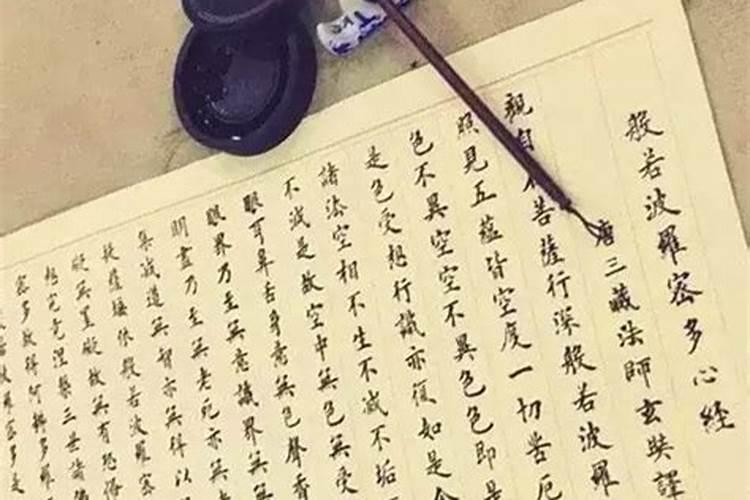 般若波羅密多心經
唐三藏法師玄奘譯
觀自菩薩行深般若波羅
照見五蘊皆空度一切苦厄
色不異空空不異色色即是
是色受想行識亦復如是
諸法空相不生不滅不垢
不減是故空中無色無受
眼耳鼻舌身意無色聲香
眼界乃至無意識界無
明盡乃至無老死亦無
集滅道無智亦無得以
薩埵依般若波羅密
無罣礙故無有恐怖
想究竟涅槃三世諸
密多故得阿耨多羅
般若波羅密多是